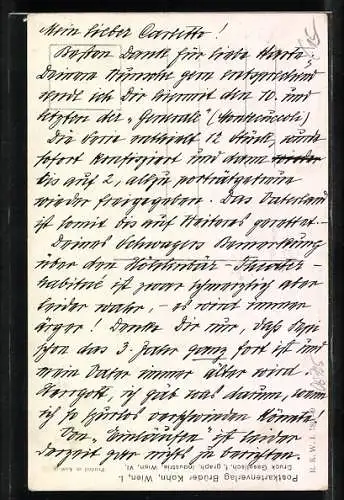 Mein lieber Carletto!
Besten Dank für liebe Karte.
Deinem Wunsche gern entsprechend
sende ich Dir hiermit den 10. und
letzten der „Generale“ (Montecuccoli)
Die Serie enthielt 12 Stück, wurde
sofort konfisziert und dann
bis auf 2, allzu porträtgetreue
wieder freigegeben. Das Vaterland
ist somit bis auf Weiteres gerettet. –
Deines Schwagers Bemerkung
über den Theater-
habitué ist zwar schmerzlich aber
leider wahr, – es wird immer
ärger! Denke Dir nur, daß
schon das 3. Jahr ganz fort ist und
mein Vater immer älter wird.
Herrgott, ich gäb was darum, wenn
ich so spurlos verschwinden könnte!
Von „Einläufen“ ist leider
derzeit gar nichts zu berichten.
Postkartenverlag Brüder Kohn, Wien, I.
Druck Gesellsch. f. graph. Industrie, Wien, VI.
B. K. W. I.
Printed in